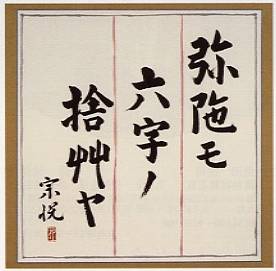 弥陁モ
六字ノ
捨艸ヤ
宗悦